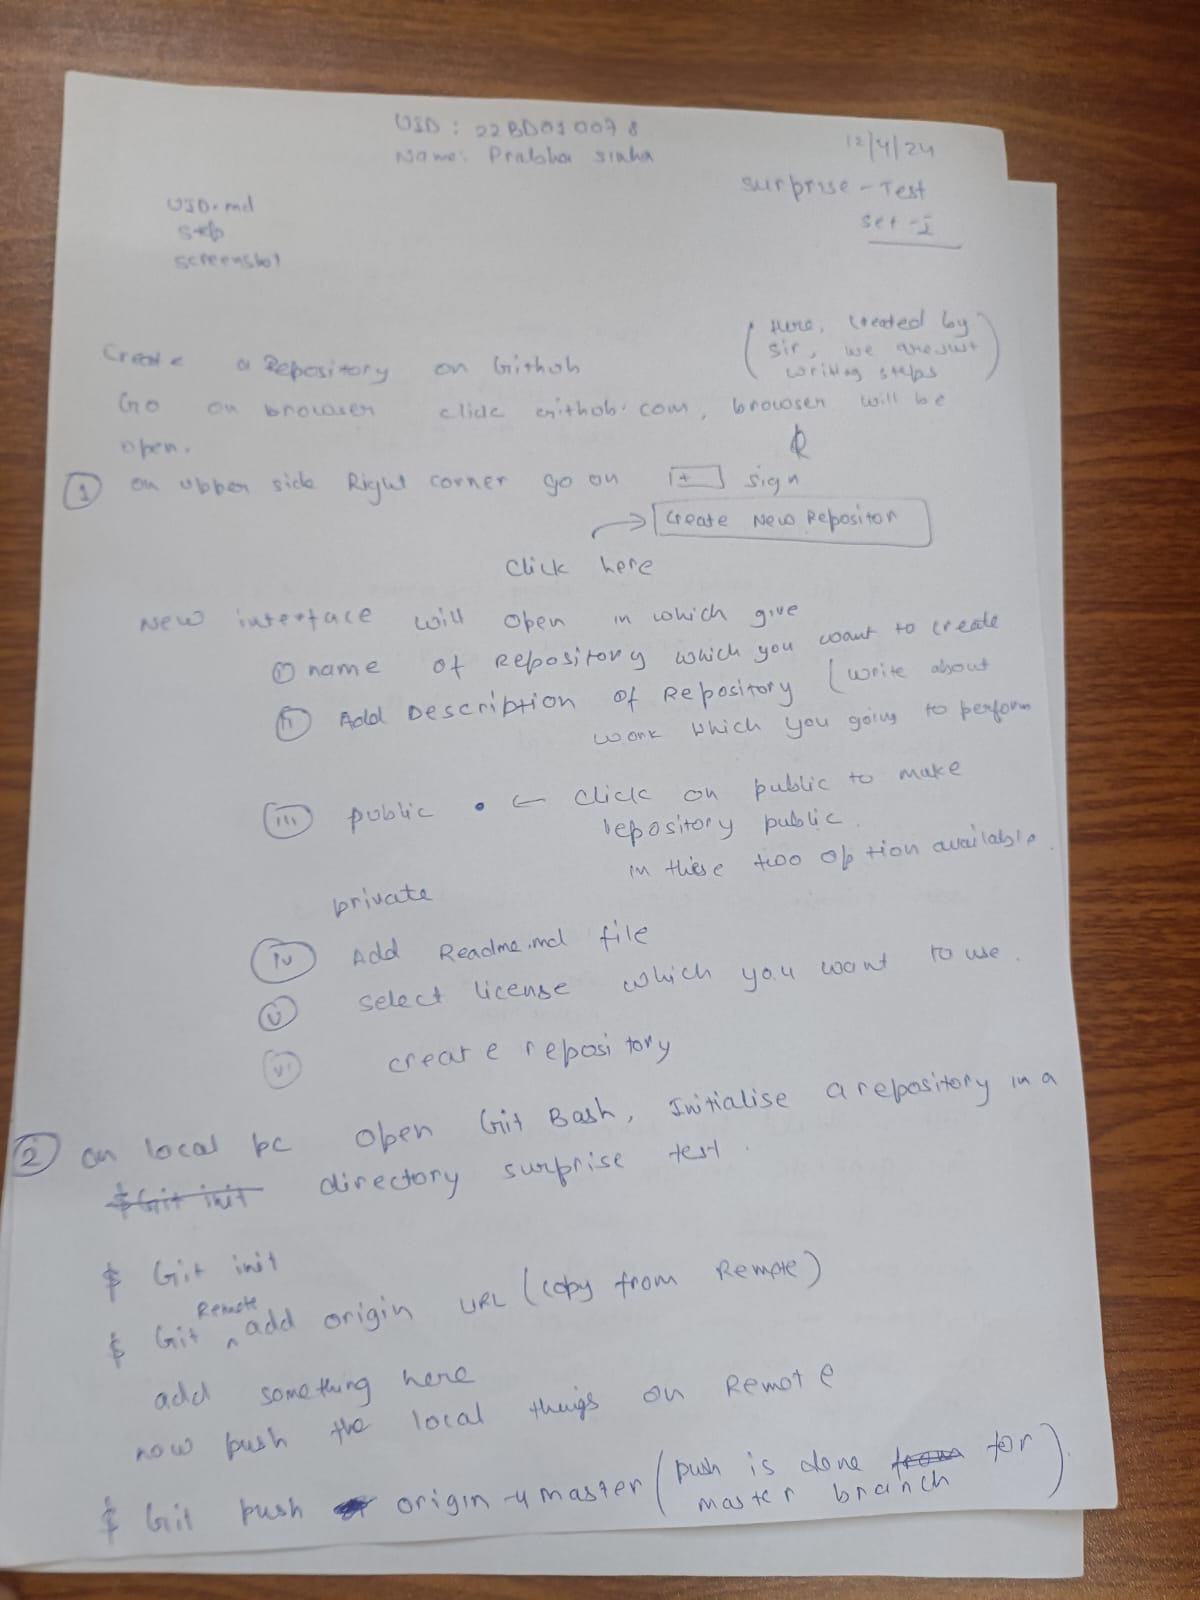 UID : 22BD010078
Name: Prabha sinha
12/4/24
surprise - Test
set - I
UID.md
screenshot
(Here, created by
sir, we are just
writing steps)
Create a Repository on Github
Go on browser click github.com, browser will be
open.
① on upper side Right corner go on [+] sign
Create New Repositor
Click here
New interface will open in which give
① name of Repository which you want to create
(ii) Add Description of Repository (write about
work which you going to perform
(iii) public • ← Click on public to make
repository public.
in these two option available.
private
(iv) Add Readme.md file
(v) select license which you want to use.
(vi) create repository
② on local pc open Git Bash, Initialise a repository in a
$ Git init directory surprise test.
$ Git init
$ Git Remote add origin URL (copy from Remote)
add something here
now push the local things on Remote
$ Git push origin -u master (push is done from for
master branch).